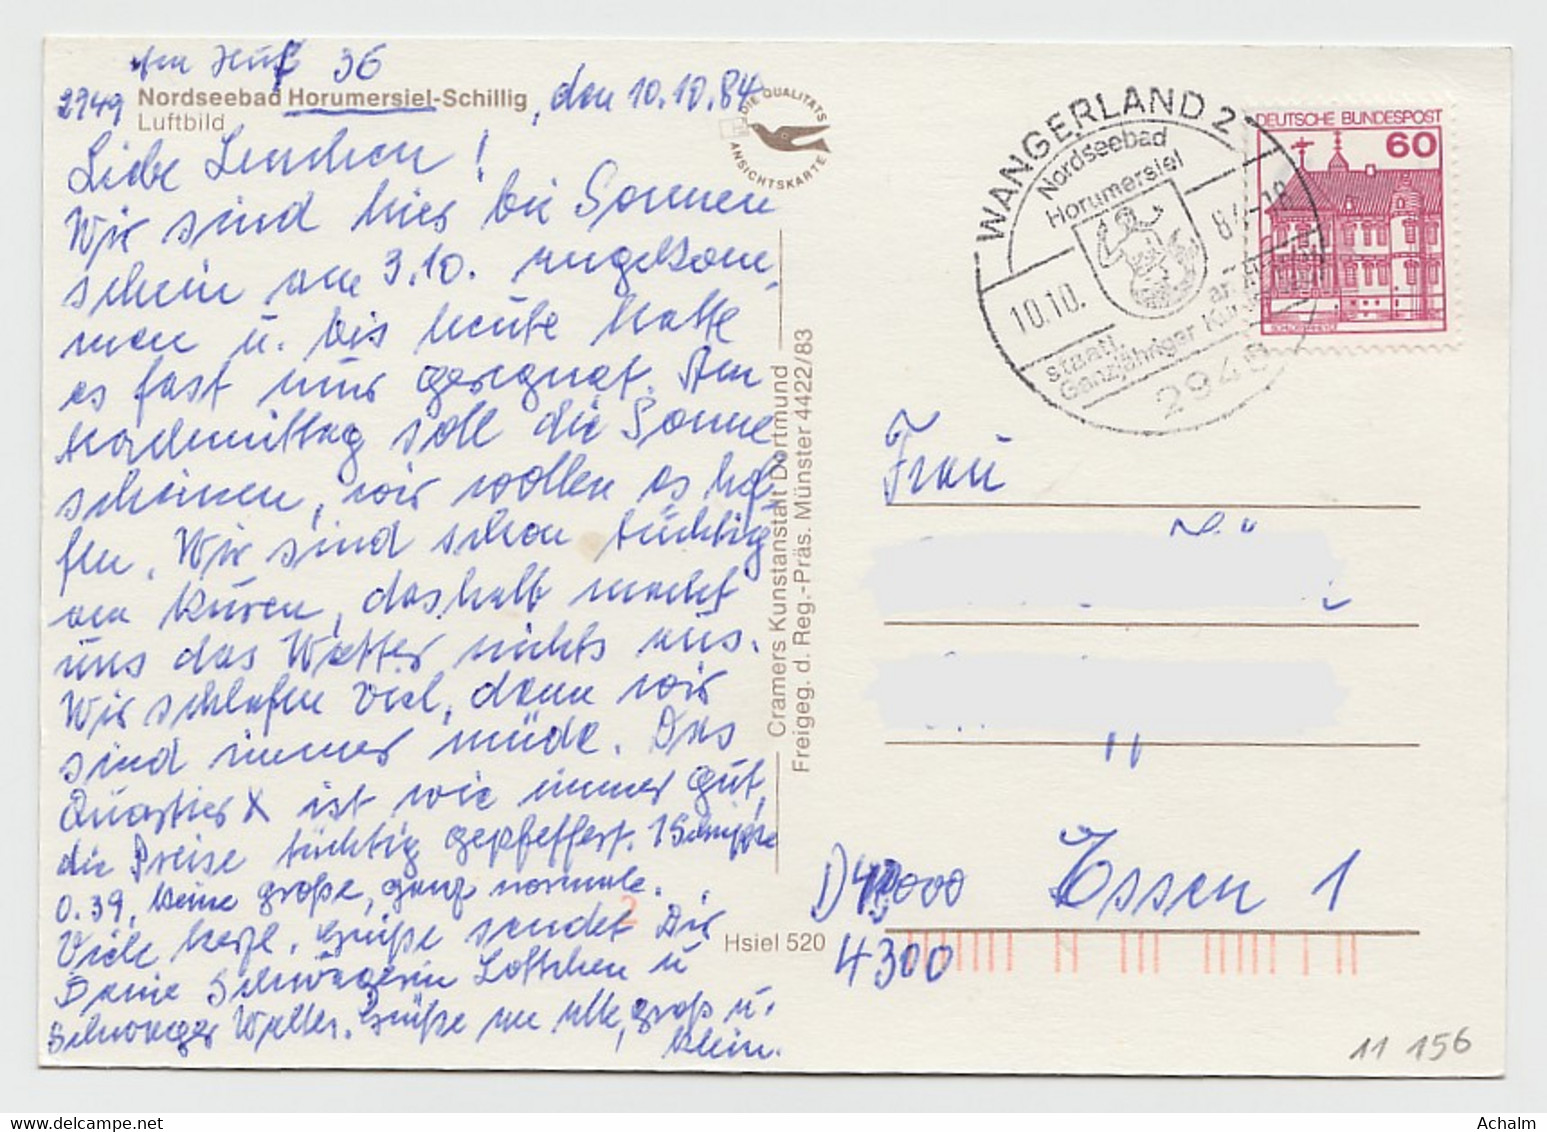 36
2949 Nordseebad Horumersiel-Schillig, den 10.10.84
Luftbild
Liebe Lenchen!
Wir sind hier bei Sonnen
schein am 3.10. angekom
men u. bis heute hatte
es fast nur geregnet. Am
Nachmittag soll die Sonne
scheinen, wir wollen es hof
fen. Wir sind schon tüchtig
am Kuren, deshalb macht
uns das Wetter nichts aus.
Wir schlafen viel, denn wir
sind immer müde. Das
Quartier ist wie immer gut,
die Preise tüchtig gepfeffert. 1 Schrippe
0.39, keine große, ganz normale.
Viele herzl. Grüße sendet Dir
Deine Schwägerin Lottchen u
Schwager Walter. Grüße an alle, groß u.
klein.
DIE QUALITÄTS
ANSICHTSKARTE
Cramers Kunstanstalt Dortmund
Freigeg. d. Reg.-Präs. Münster 4422/83
Hsiel 520
2
WANGERLAND 2
Nordseebad
Horumersiel
10.10. 84-18
staatl.
Ganzjähriger
DEUTSCHE BUNDESPOST
60
Frau
Essen 1
4300
11 156
Achalm